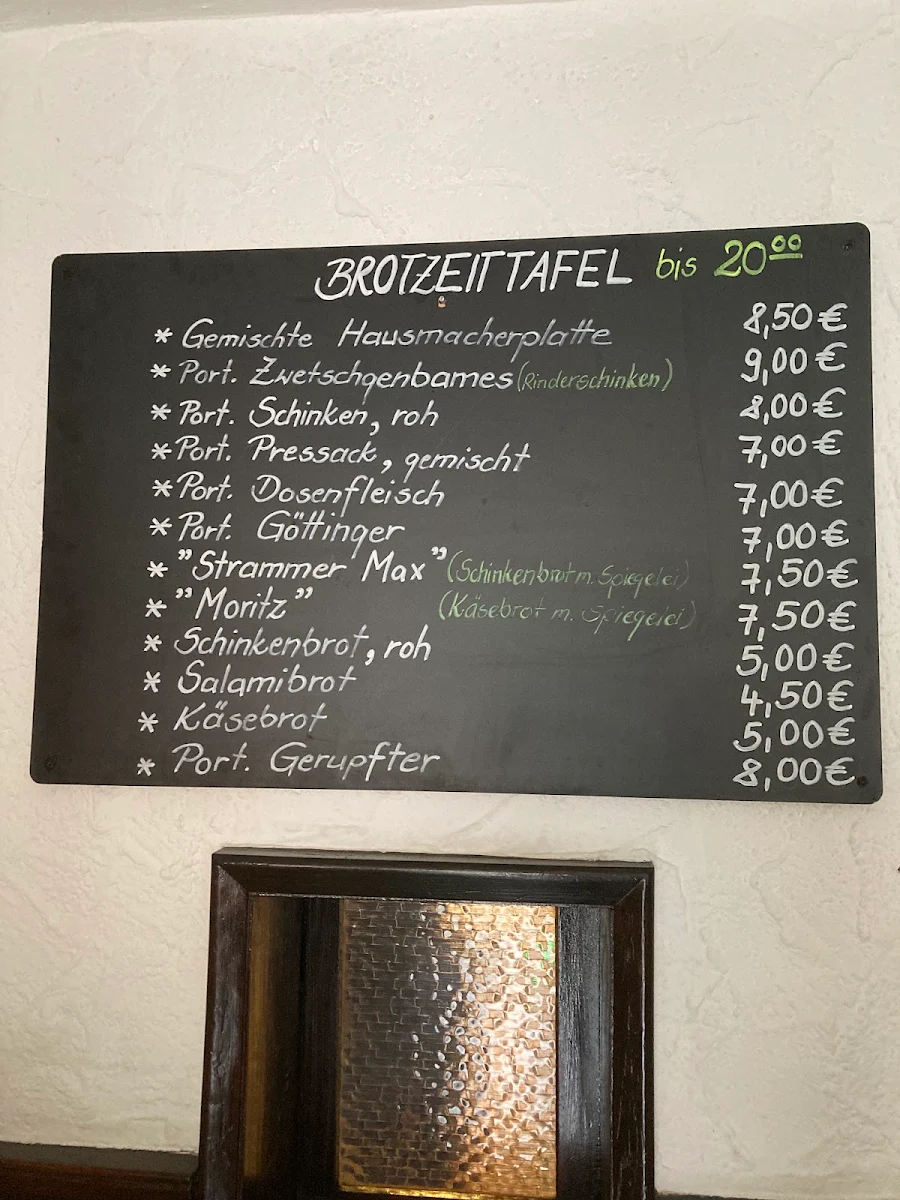 BROTZEITTAFEL bis 20⁰⁰
* Gemischte Hausmacherplatte 8,50 €
* Port. Zwetschgenbames (Rinderschinken) 9,00 €
* Port. Schinken, roh 8,00 €
* Port. Pressack, gemischt 7,00 €
* Port. Dosenfleisch 7,00 €
* Port. Göttinger 7,00 €
* "Strammer Max" (Schinkenbrot m. Spiegelei) 7,50 €
* "Moritz" (Käsebrot m. Spiegelei) 7,50 €
* Schinkenbrot, roh 5,00 €
* Salamibrot 4,50 €
* Käsebrot 5,00 €
* Port. Gerupfter 8,00 €